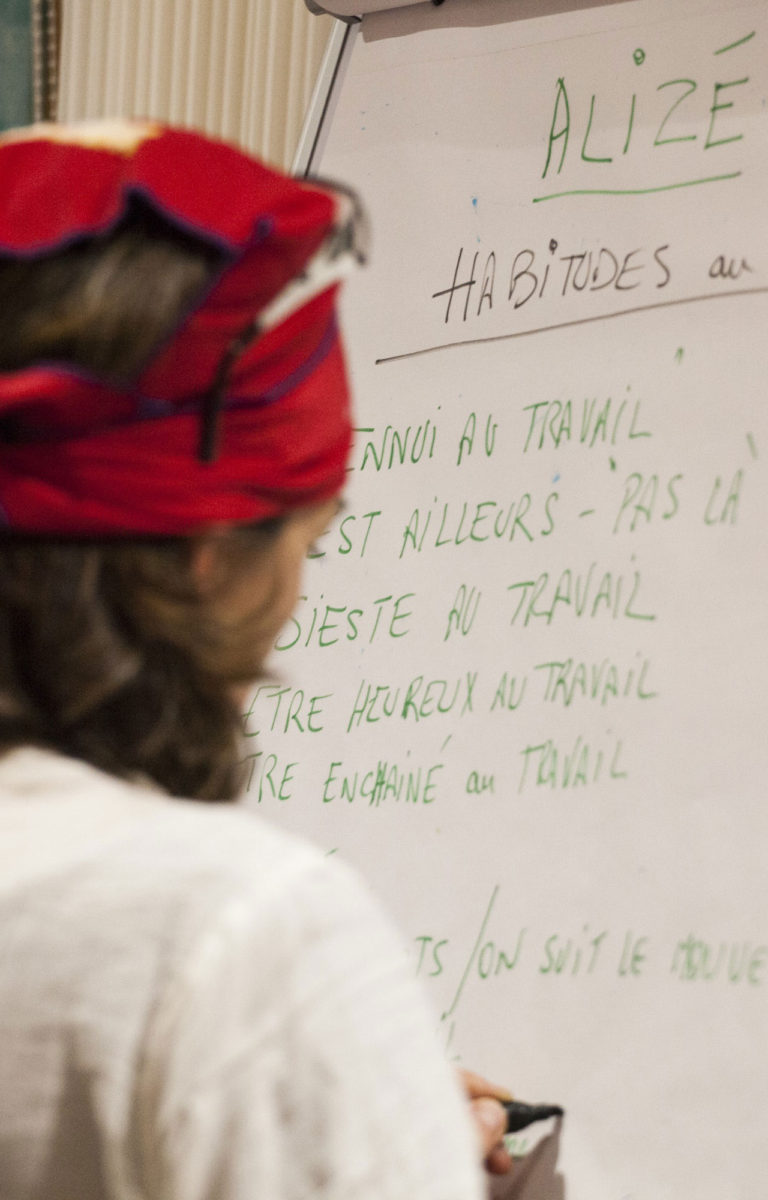 ALIZÉ
HABITUDES au
ENNUI AU TRAVAIL
EST AILLEURS - PAS LÀ
SIESTE AU TRAVAIL
ETRE HEUREUX AU TRAVAIL
TRE ENCHAINÉ au TRAVAIL
TS / ON SUIT LE MOUVE